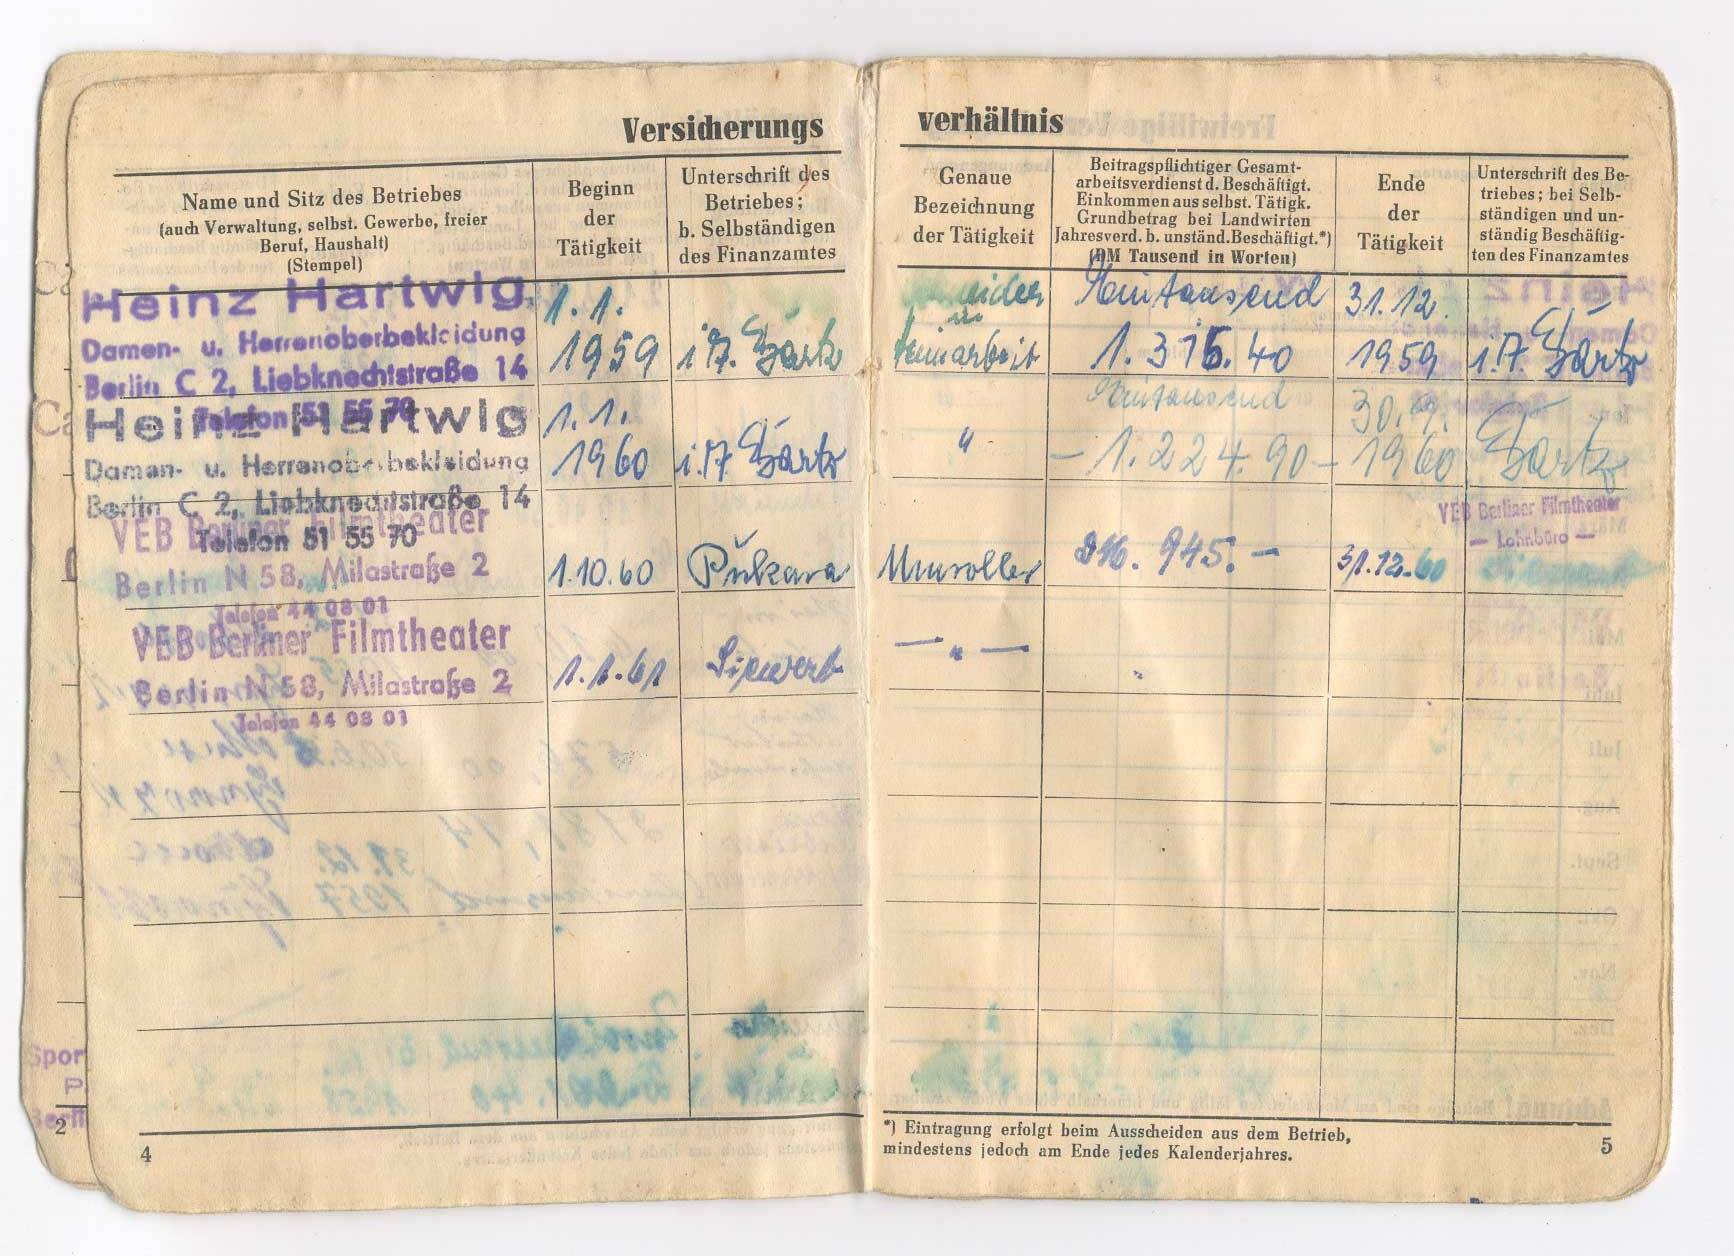 Versicherungs
Name und Sitz des Betriebes
(auch Verwaltung, selbst. Gewerbe, freier
Beruf, Haushalt)
(Stempel)
Beginn
der
Tätigkeit
Unterschrift des
Betriebes;
b. Selbständigen
des Finanzamtes
Heinz Hartwig
Damen- u. Herrenoberbekleidung
Berlin C 2, Liebknechtstraße 14
Telefon 51 55 70
1.1.
1959
Heinz Hartwig
Damen- u. Herrenoberbekleidung
Berlin C 2, Liebknechtstraße 14
Telefon 51 55 70
1.1.
1960
VEB Berliner Filmtheater
Berlin N 58, Milastraße 2
Telefon 44 08 01
1.10.60
VEB Berliner Filmtheater
Berlin N 58, Milastraße 2
Telefon 44 08 01
1.1.61
Siewert
4
2
Spor
P
Berli
verhältnis
Genaue
Bezeichnung
der Tätigkeit
Beitragspflichtiger Gesamt-
arbeitsverdienst d. Beschäftigt.
Einkommen aus selbst. Tätigk.
Grundbetrag bei Landwirten
Jahresverd. b. unständ. Beschäftigt.*)
(DM Tausend in Worten)
Ende
der
Tätigkeit
Unterschrift des Be-
triebes; bei Selb-
ständigen und un-
ständig Beschäftig-
ten des Finanzamtes
Heimarbeit
Eintausend
1.315.40
31.12.
1959
"
Eintausend
– 1.224.90 –
30.9.
1960
Umroller
945.–
31.12.60
VEB Berliner Filmtheater
— Lohnbüro —
— " —
*) Eintragung erfolgt beim Ausscheiden aus dem Betrieb,
mindestens jedoch am Ende jedes Kalenderjahres.
5